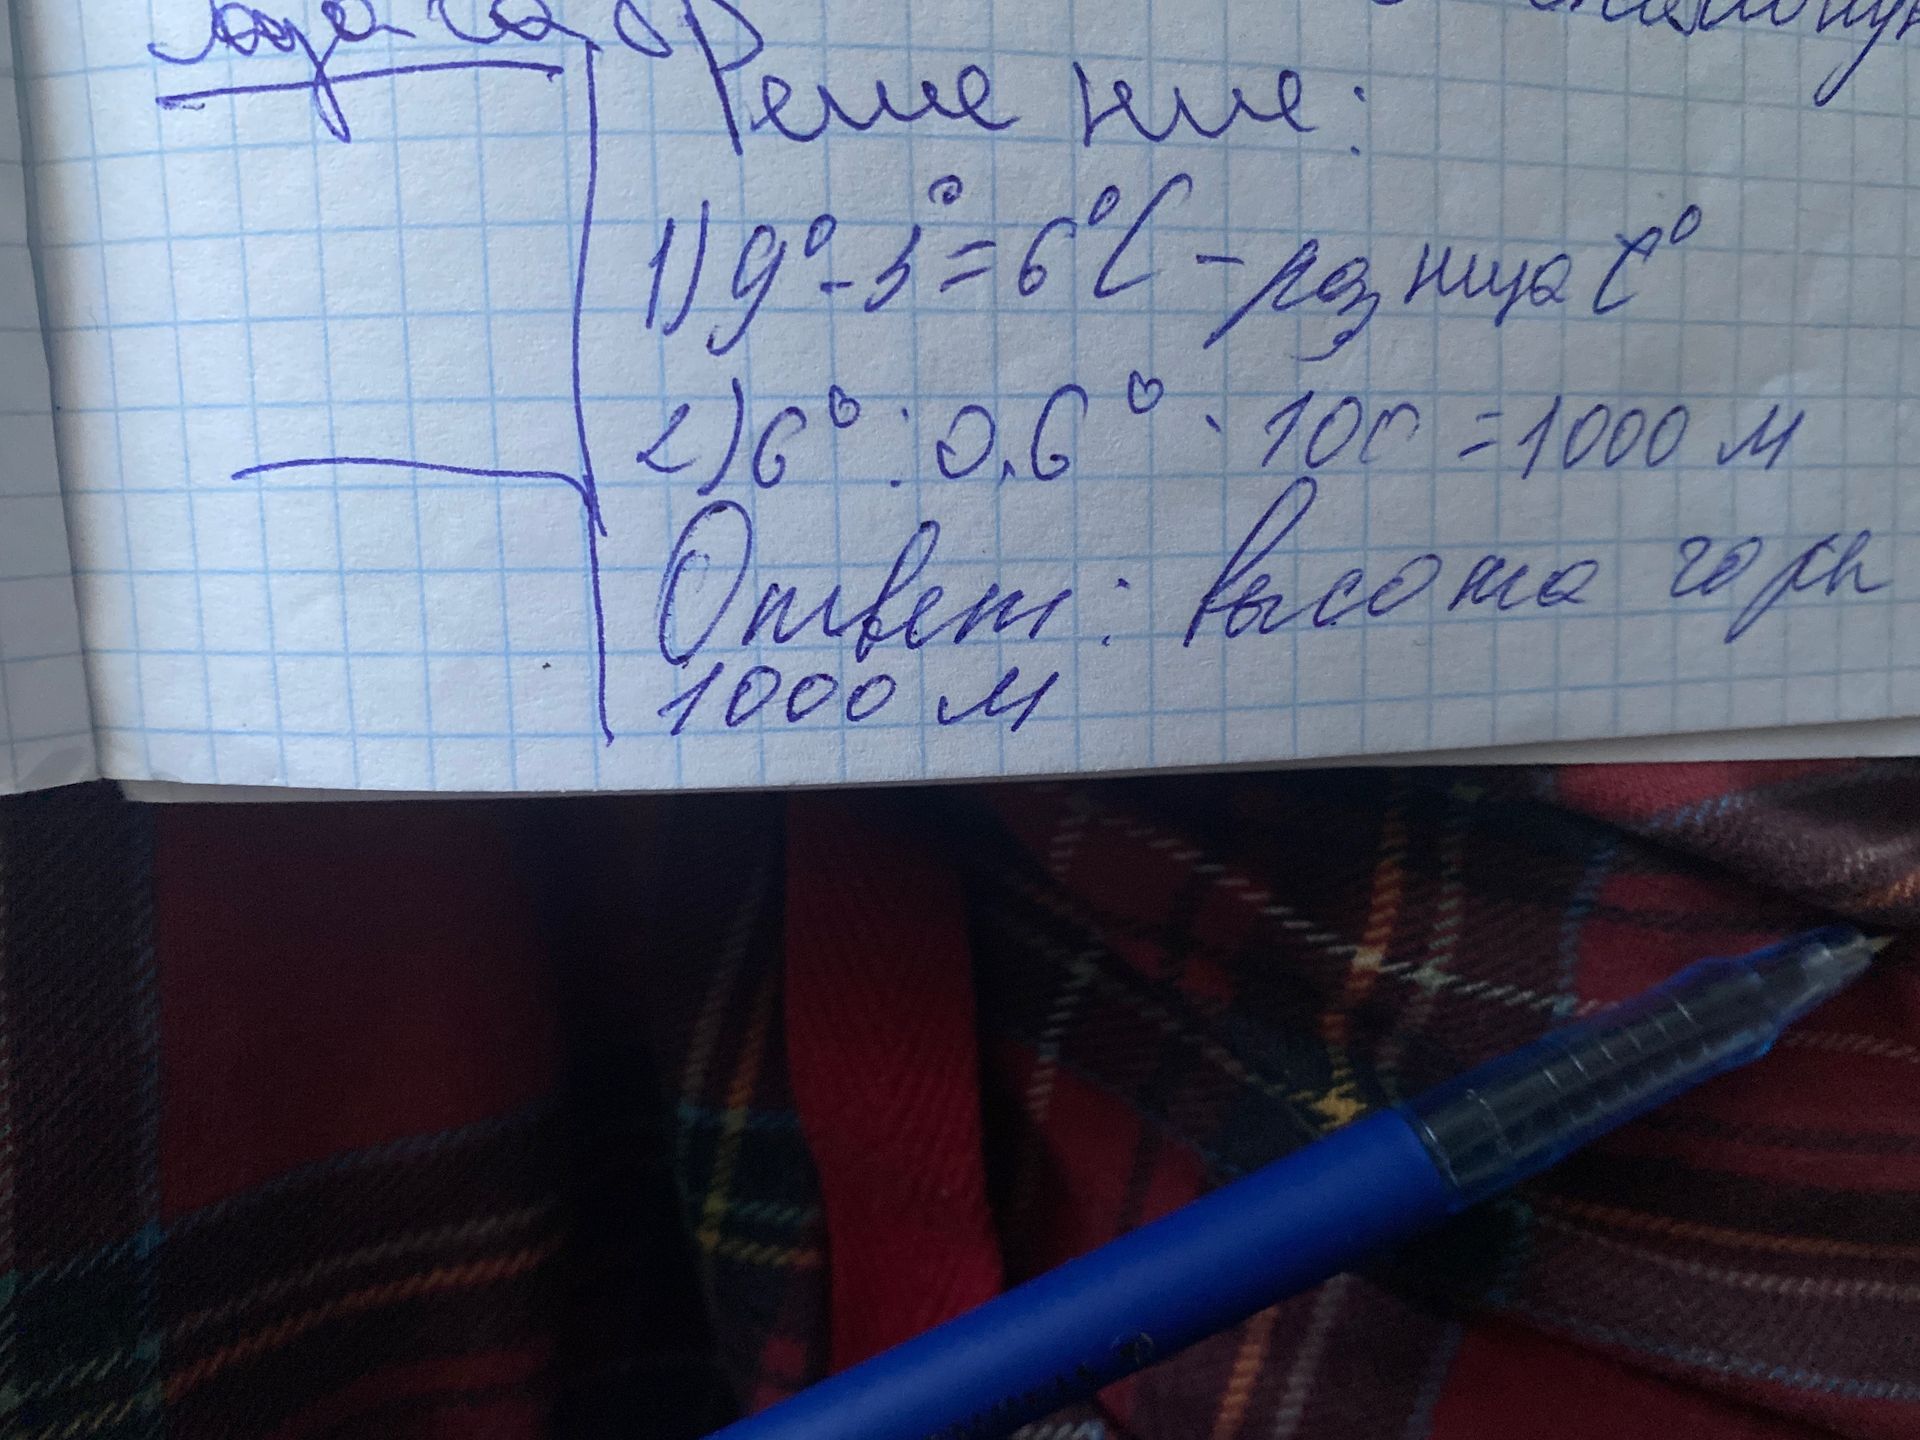 Решение:
1) 9° - 3° = 6°С - разница t°
2) 6° : 0,6° · 100 = 1000 м
Ответ: высота горы
1000 м